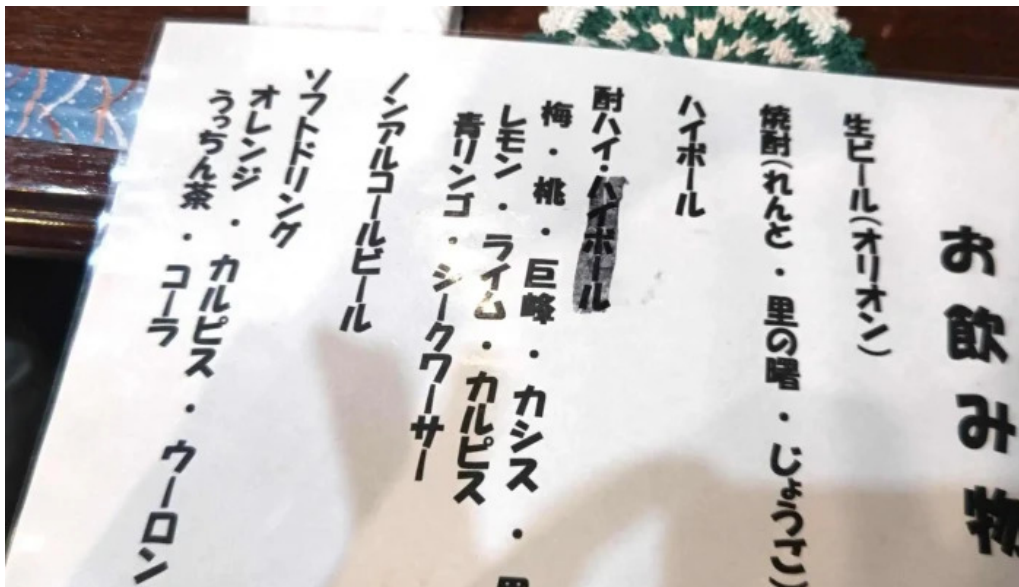 お飲み物
生ビール(オリオン)
焼酎(れんと・里の曙・じょうご)
ハイボール
酎ハイ・ハイボール
梅・桃・巨峰・カシス・
レモン・ライム・カルピス
青リンゴ・シークワーサー
ノンアルコールビール
ソフトドリング
オレンジ・カルピス・ウーロン
うっちん茶・コーラ